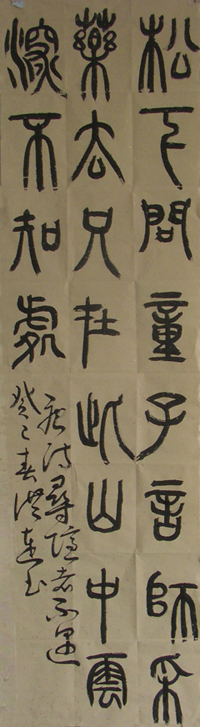 松下問童子言師采
藥去只在此山中雲
深不知處
唐诗尋隱者不遇
癸巳春洪連书